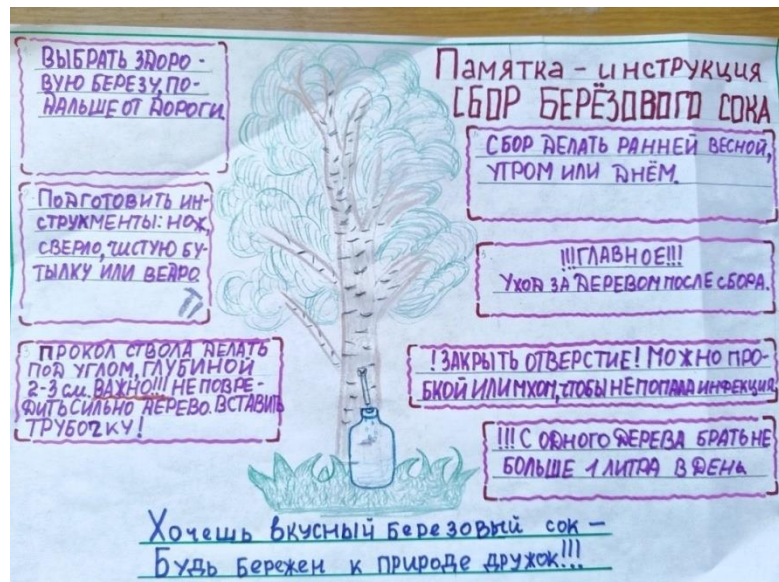 Памятка - инструкция
СБОР БЕРЁЗОВОГО СОКА
ВЫБРАТЬ ЗДОРО-
ВУЮ БЕРЕЗУ, ПО-
ДАЛЬШЕ ОТ ДОРОГИ.
ПОДГОТОВИТЬ ИН-
СТРУКМЕНТЫ: НОЖ,
СВЕРЛО, ЧИСТУЮ БУ-
ТЫЛКУ ИЛИ ВЕДРО.
ПРОКОЛ СТВОЛА ДЕЛАТЬ
ПОД УГЛОМ, ГЛУБИНОЙ
2-3 см. ВАЖНО!!! НЕ ПОВРЕ-
ДИТЬ СИЛЬНО ДЕРЕВО. ВСТАВИТЬ
ТРУБОЧКУ!
СБОР ДЕЛАТЬ РАННЕЙ ВЕСНОЙ,
УТРОМ ИЛИ ДНЁМ.
!!!ГЛАВНОЕ!!!
УХОД ЗА ДЕРЕВОМ ПОСЛЕ СБОРА.
!ЗАКРЫТЬ ОТВЕРСТИЕ! МОЖНО ПРО-
БКОЙ ИЛИ МХОМ, ЧТОБЫ НЕ ПОПАЛА ИНФЕКЦИЯ
!!! С ОДНОГО ДЕРЕВА БРАТЬ НЕ
БОЛЬШЕ 1 ЛИТРА В ДЕНЬ
Хочешь вкусный березовый сок –
Будь бережен к природе дружок!!!